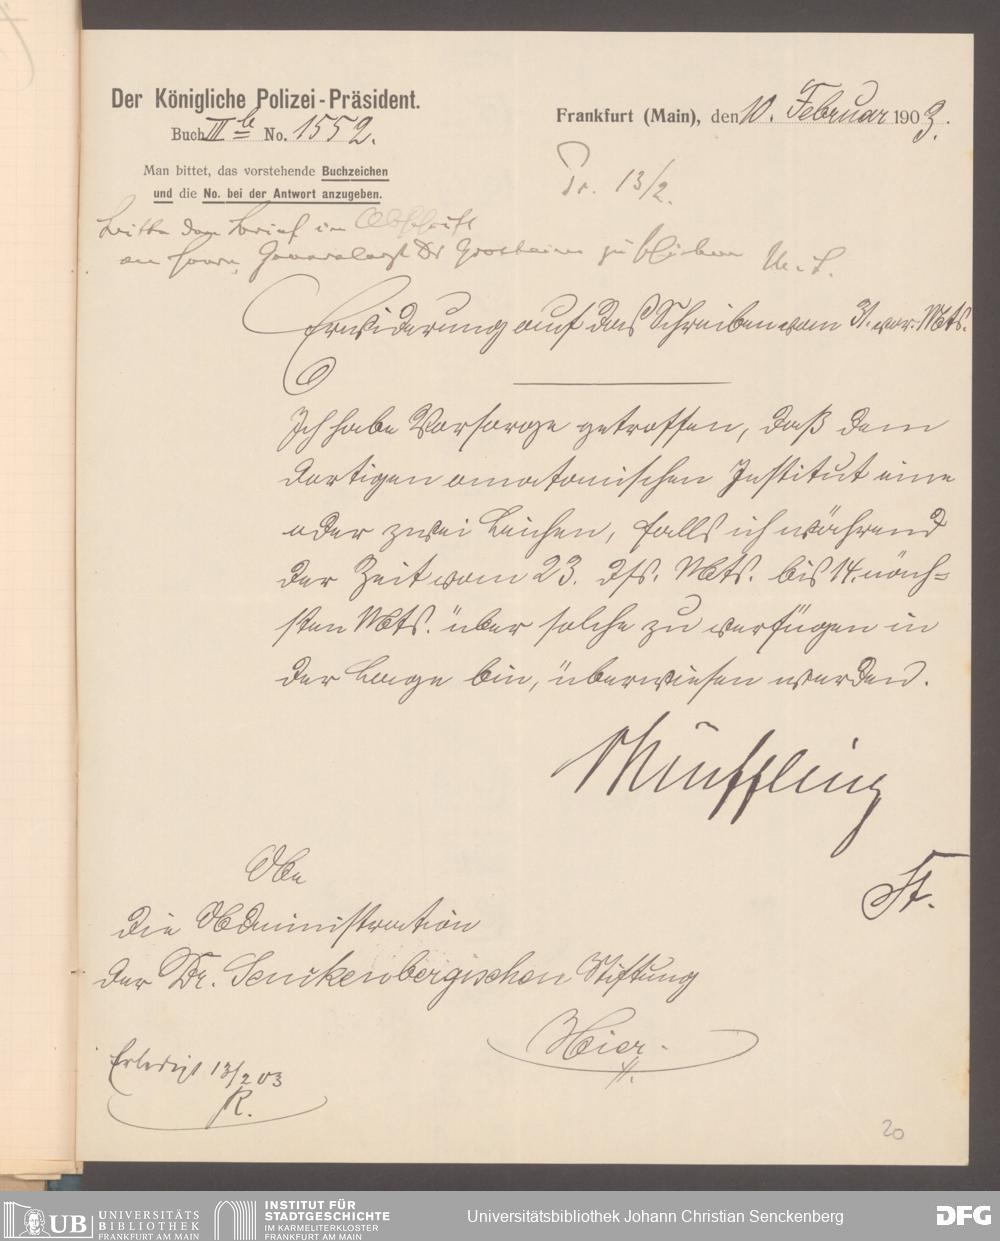 Der Königliche Polizei-Präsident.
Buch IIIb No. 1552.
Frankfurt (Main), den 10. Februar 1903.
Man bittet, das vorstehende Buchzeichen
und die No. bei der Antwort anzugeben.
Pr. 13/2.
Bitte den Brief in Abschrift
an Herrn Generalarzt Dr Grossheim zu schicken
Erwiderung auf das Schreiben vom 31. vor. Mts.
Ich habe Vorsorge getroffen, daß dem
dortigen anatomischen Institut eine
oder zwei Leichen, falls ich während
der Zeit vom 23. dss. Mts. bis 14. näch-
sten Mts. über solche zu verfügen in
der Lage bin, überwiesen werden.
Müffling
St.
An
die Administration
der Dr. Senckenbergischen Stiftung
Hier.
Erledigt 13/2 03
R.
20
UB UNIVERSITÄTS
BIBLIOTHEK
FRANKFURT AM MAIN
INSTITUT FÜR
STADTGESCHICHTE
IM KARMELITERKLOSTER
FRANKFURT AM MAIN
Universitätsbibliothek Johann Christian Senckenberg
DFG